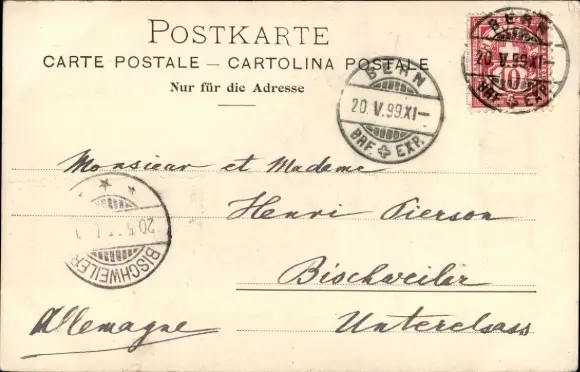 POSTKARTE
CARTE POSTALE — CARTOLINA POSTALE
Nur für die Adresse
BERN
20. V. 99. XI—
BRF. EXP.
BERN
20. V. 99. XI—
BRF. EXP.
10
Monsieur et Madame
Henri Pierson
Bischweiler
Unterelsass
Allemagne
BISCHWEILER
20.5